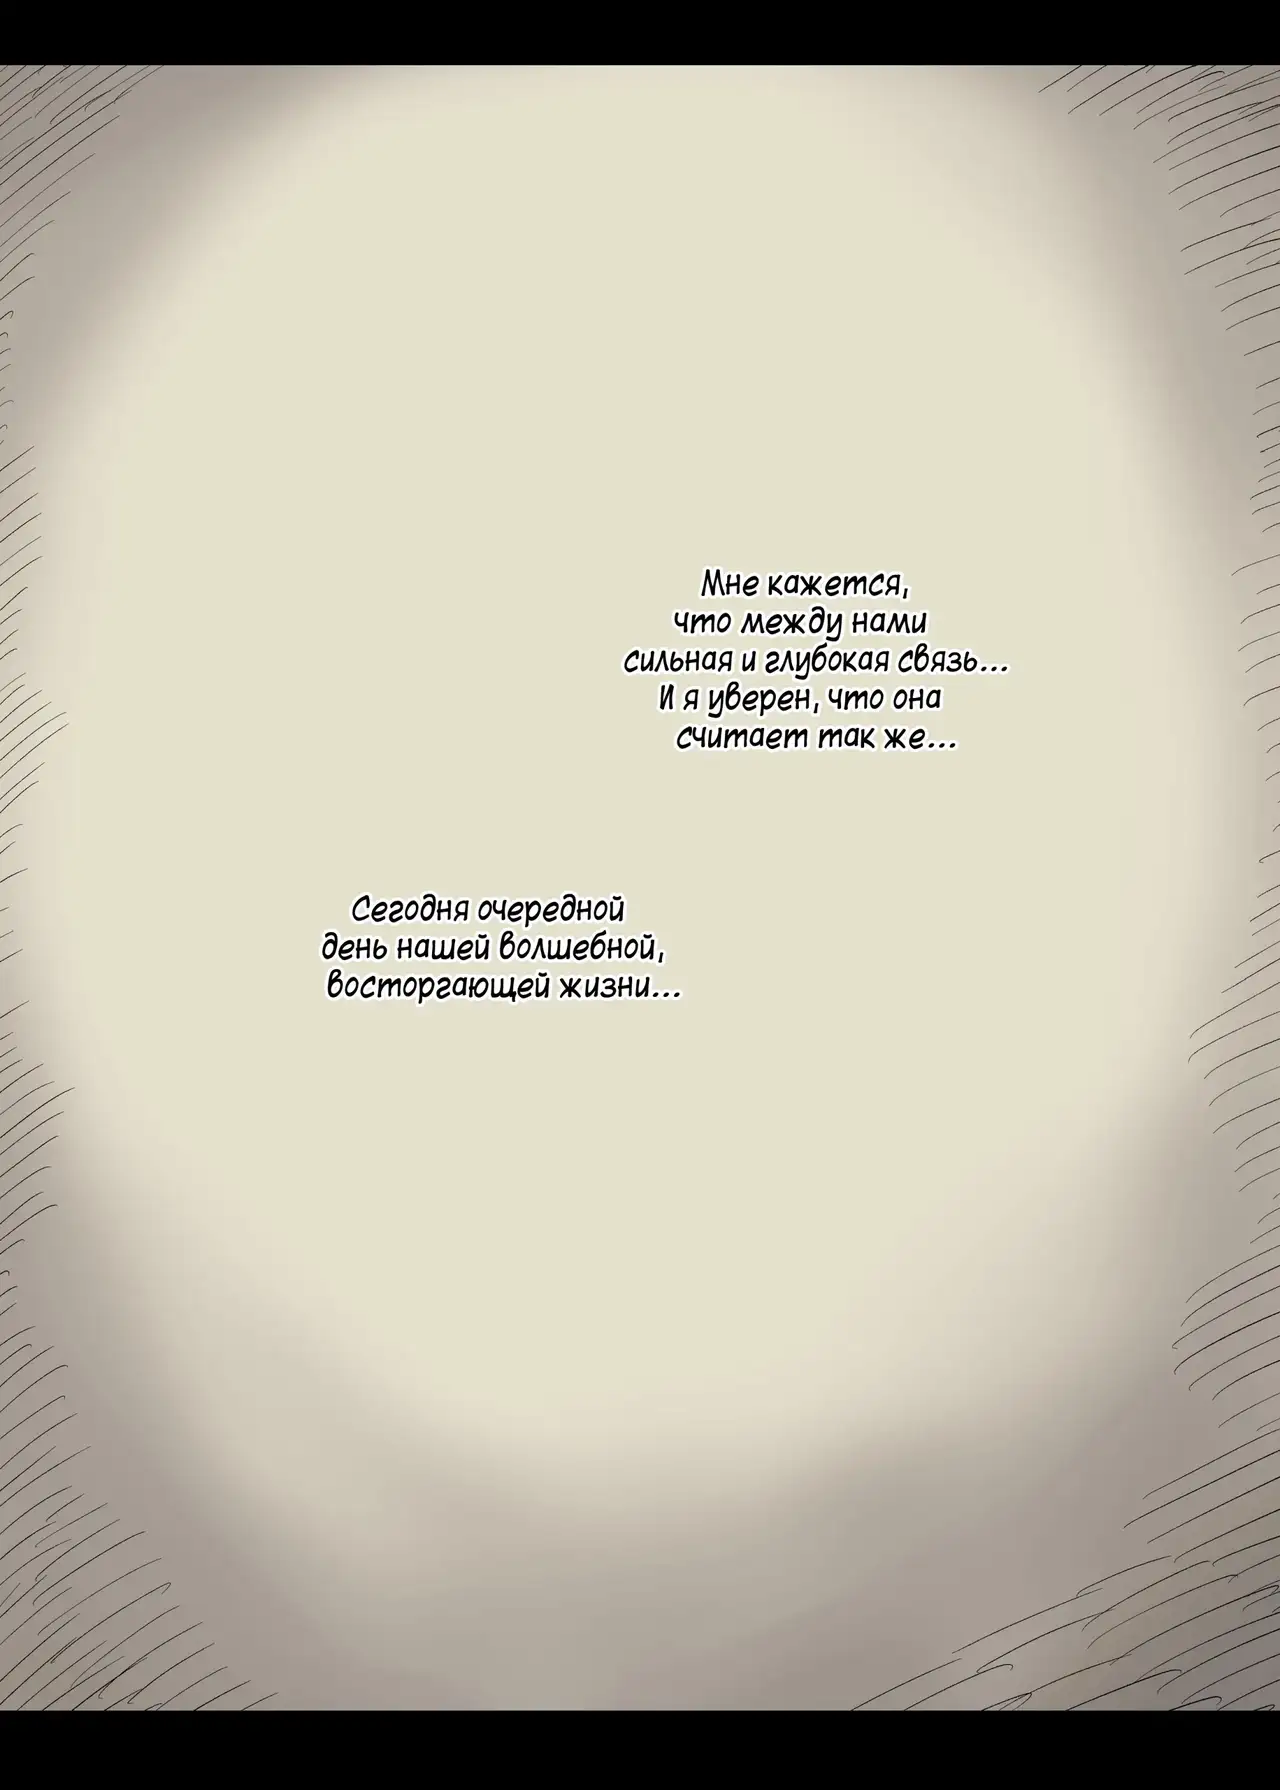 Мне кажется,
что между нами
сильная и глубокая связь...
И я уверен, что она
считает так же...
Сегодня очередной
день нашей волшебной,
восторгающей жизни...